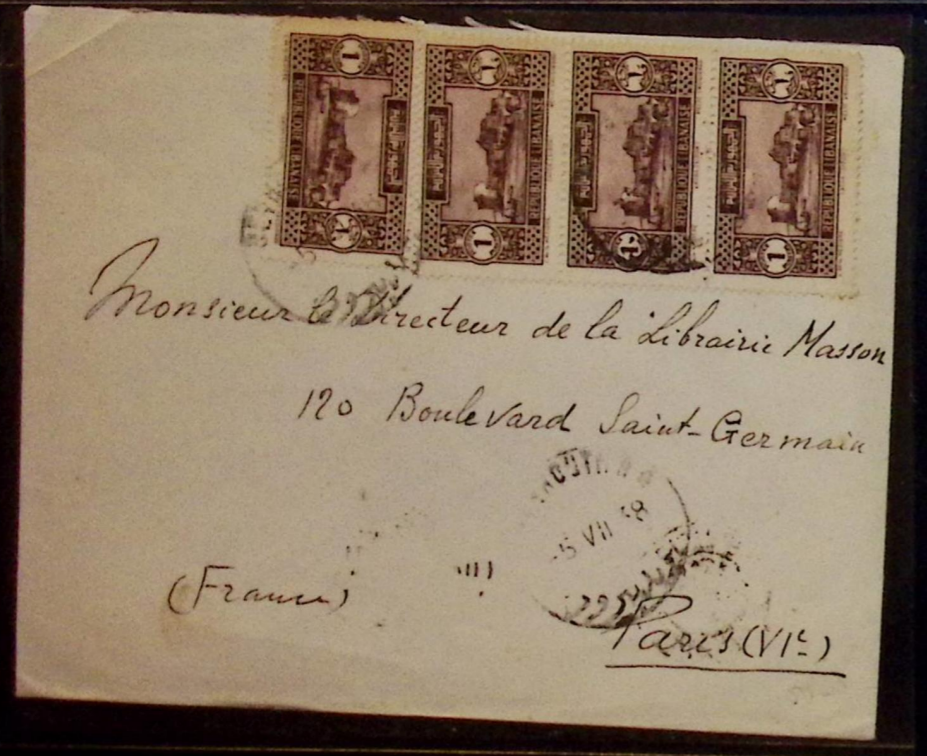 1 1 1 1
REPUBLIQUE LIBANAISE REPUBLIQUE LIBANAISE REPUBLIQUE LIBANAISE REPUBLIQUE LIBANAISE
1 1 1 1
Monsieur le Directeur de la Librairie Masson
120 Boulevard Saint-Germain
5 VII 38
(France)
Paris (VIe)